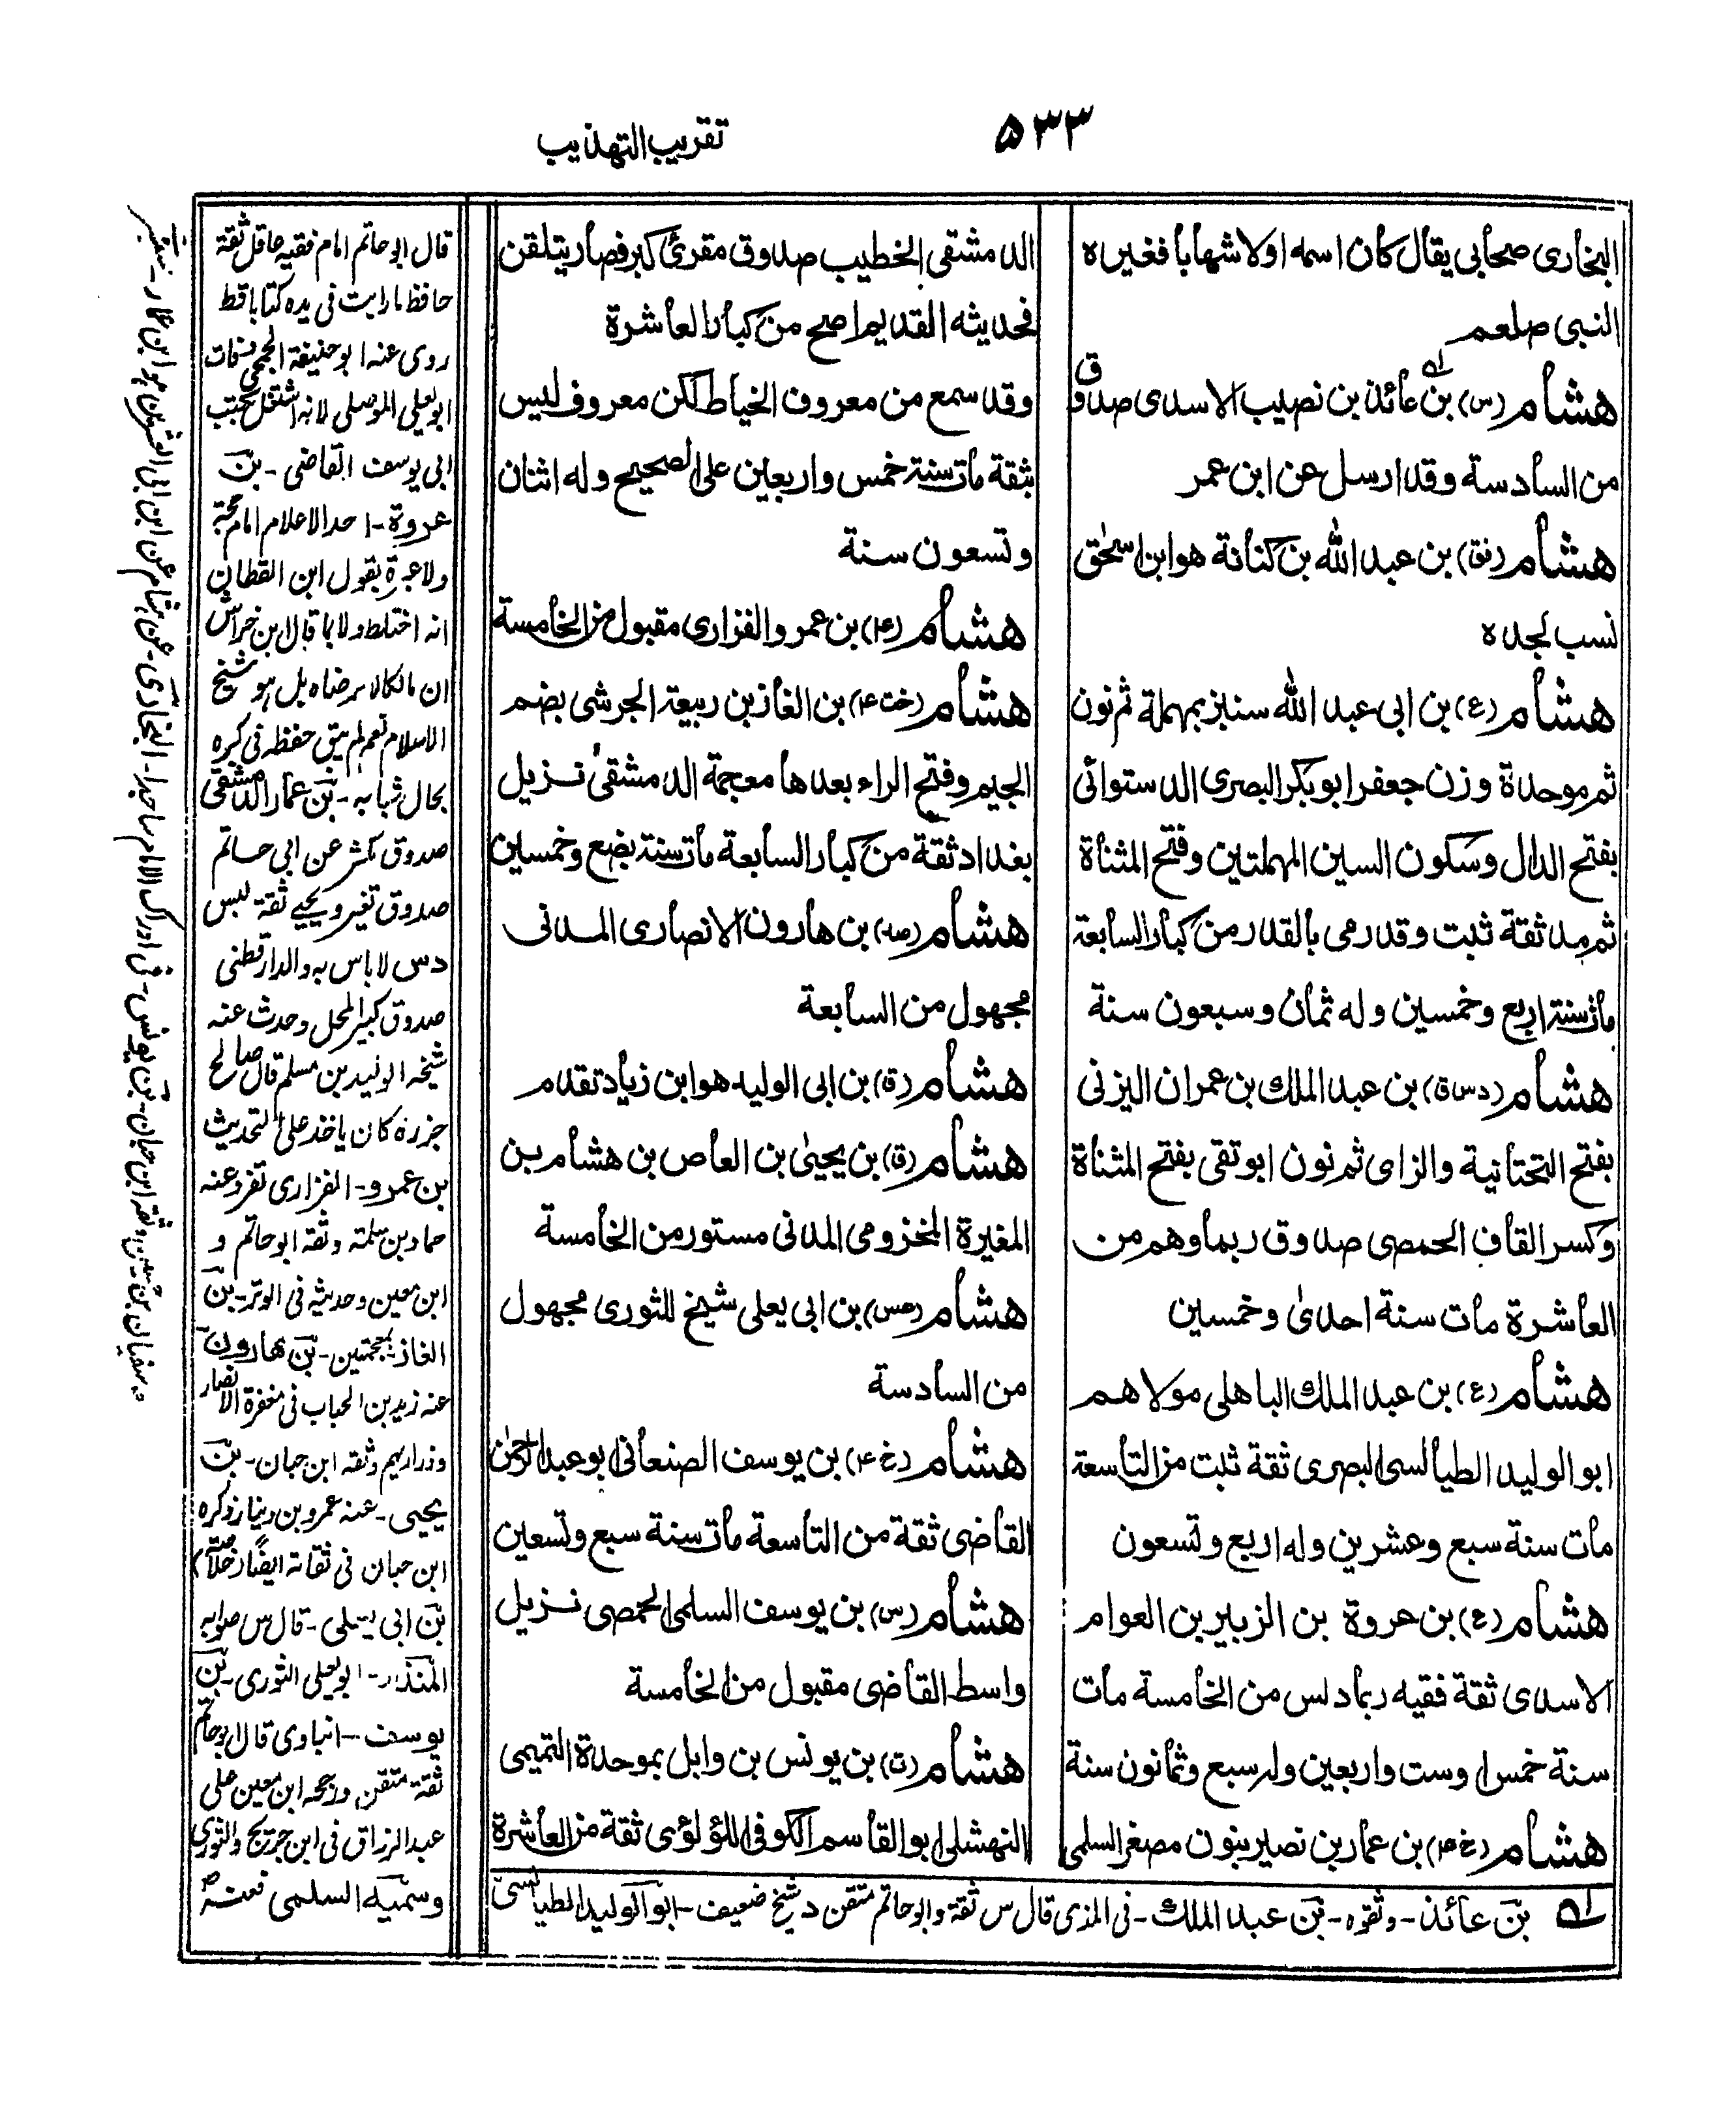 ٥٣٣
تقريب التهذيب
البخارى صحابى يقال كان اسمه اولا شهابا فغيره
النبى صلعم
هشام (س) بن عائذ بن نصيب الاسدى صدوق
من السادسة وقد ارسل عن ابن عمر
هشام بن عبد الله بن كنانة هو ابن اسحٰق
نسب لجده
هشام (ع) بن ابى عبد الله سنبر بمهملة ثم نون
ثم موحدة وزن جعفر ابو بكر البصرى الدستوائى
بفتح الدال وسكون السين المهملتين وفتح المثناة
ثم مد ثقة ثبت وقد رمى بالقدر من كبار السابعة
مات سنة اربع وخمسين وله ثمان وسبعون سنة
هشام (دس ق) بن عبد الملك بن عمران اليزنى
بفتح التحتانية والزاى ثم نون ابو تقى بفتح المثناة
وكسر القاف الحمصى صدوق ربما وهم من
العاشرة مات سنة احدىٰ وخمسين
هشام (ع) بن عبد الملك الباهلى مولاهم
ابو الوليد الطيالسى البصرى ثقة ثبت من التاسعة
مات سنة سبع وعشرين وله اربع وتسعون
هشام (ع) بن عروة بن الزبير بن العوام
الاسدى ثقة فقيه ربما دلس من الخامسة مات
سنة خمس او ست واربعين وله سبع وثمانون سنة
هشام (خ ۴) بن عمار بن نصير بنون مصغر السلمى
الدمشقى الخطيب صدوق مقرئ كبر فصار يتلقن
فحديثه القديم اصح من كبار العاشرة
وقد سمع من معروف الخياط لكن معروف ليس
بثقة مات سنة خمس واربعين على الصحيح وله اثنان
وتسعون سنة
هشام (۴) بن عمرو الفزارى مقبول من الخامسة
هشام (خت ۴) بن الغاز بن ربيعة الجرشى بضم
الجيم وفتح الراء بعدها معجمة الدمشقى نزيل
بغداد ثقة من كبار السابعة مات سنة بضع وخمسين
هشام بن هارون الانصارى المدنى
مجهول من السابعة
هشام (ق) بن ابى الوليد هو ابن زياد تقدم
هشام (ق) بن يحيىٰ بن العاص بن هشام بن
المغيرة المخزومى المدنى مستور من الخامسة
هشام (عس) بن ابى يعلى شيخ للثورى مجهول
من السادسة
هشام (خ ۴) بن يوسف الصنعانى ابو عبد الرحمٰن
القاضى ثقة من التاسعة مات سنة سبع وتسعين
هشام (س) بن يوسف السلمى الحمصى نزيل
واسط القاضى مقبول من الخامسة
هشام (ت) بن يونس بن وابل بموحدة التميمى
النهشلى ابو القاسم الكوفى اللؤلؤى ثقة من العاشرة
قال ابو حاتم امام فقيه عاقل ثقة
حافظ ما رايت فى يده كتابا قط
روى عنه ابو خليفة الجمحى وفات
ابو يعلى الموصلى لانه اشتغل بكتب
ابى يوسف القاضى - بن
عروة - احد الاعلام امام حجة
ولا عبرة بقول ابن القطان
انه اختلط ولا بما قال ابن خراش
ان مالكا لا يرضاه بل هو شيخ
الاسلام نعم لم يبق حفظه فى كبره
بحال شبابه - بن عمار الدمشقى
صدوق مكثر عن ابى حاتم
صدوق تغير ويحيے ثقة ليس
دس لا باس به والدارقطنى
صدوق كبير المحل وحدث عنه
شيخه الوليد بن مسلم قال صالح
جزره كان ياخذ على التحديث
بن عمرو - الفزارى تفرد عنه
حماد بن سلمة وثقه ابو حاتم و
ابن معين وحديثه فى الوتر - بن
الغاز - بمعجمتين - بن هارون
عنه زيد بن الحباب فى مغفرة الانصار
وذراريهم وثقه ابن حبان - بن
يحيى - عنه عمرو بن دينار ذكره
ابن حبان فى ثقاته ايضا (خلاصة)
بن ابى يعلى - قال س صوابه
المنذر - ابو يعلى الثورى - بن
يوسف - انباوى قال ابو حاتم
ثقة متقن ورجحه ابن معين على
عبد الرزاق فى ابن جريج والثورى
وسميه السلمى
بن عائذ - وثقوه - بن عبد الملك - فى المذى قال س ثقة وابو حاتم متقن د شيخ ضعيف - ابو الوليد الطيالسى